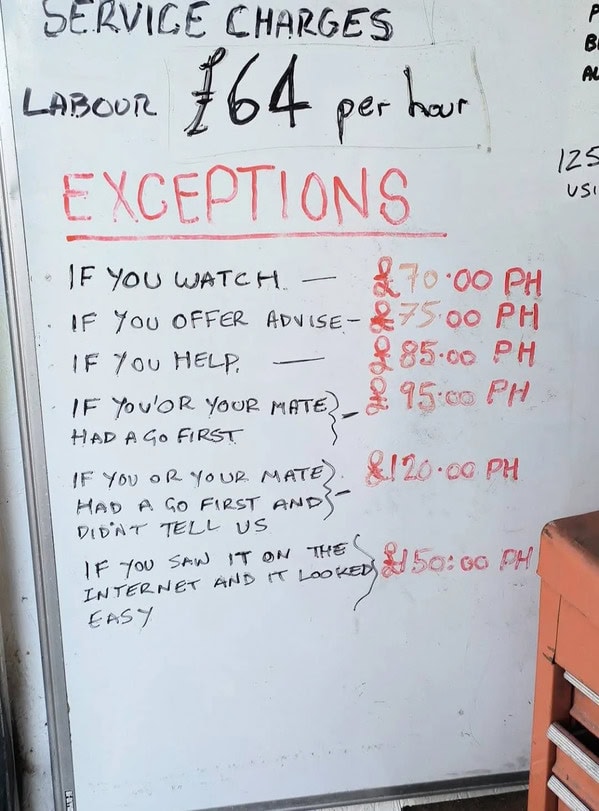 SERVICE CHARGES
LABOUR £64 per hour
EXCEPTIONS
IF YOU WATCH — £70.00 PH
IF YOU OFFER ADVISE - £75.00 PH
IF YOU HELP. — £85.00 PH
IF YOU'OR YOUR MATE} - £95.00 PH
HAD A GO FIRST
IF YOU OR YOUR MATE}. £120.00 PH
HAD A GO FIRST AND -
DIDN'T TELL US
IF YOU SAW IT ON THE
INTERNET AND IT LOOKED} £150:00 PH
EASY
125